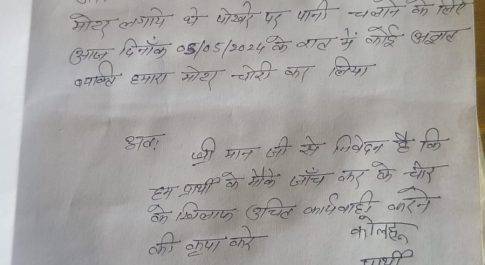 मोटर लगाये थे पोखरे पर पानी चलाने के लिए
आज दिनाँक 05/05/2024 के रात में कोई अज्ञात
व्यक्ति हमारा मोटर चोरी कर लिया
अतः श्री मान जी से निवेदन है कि
हम प्रार्थी के मौके जाँच कर के चोर
के खिलाफ उचित कार्यवाही करने
की कृपा करे कोलहू
प्रार्थी